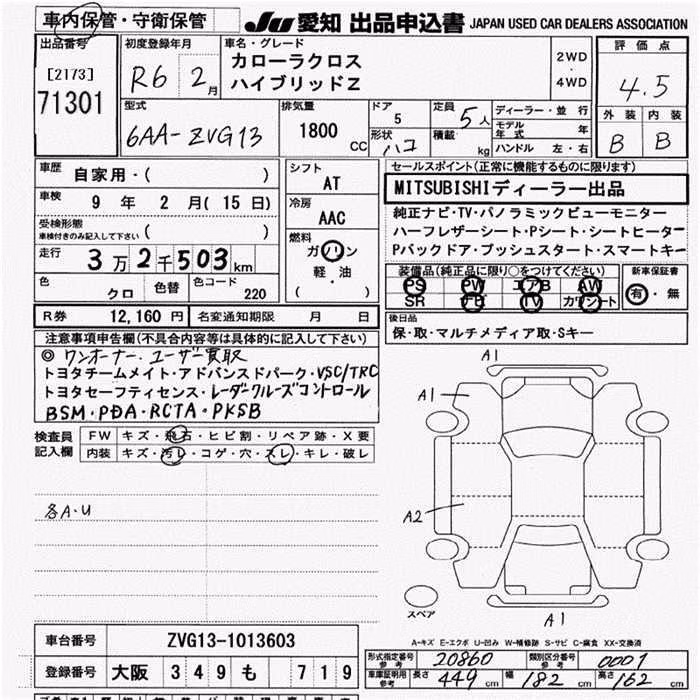 車内保管・守衛保管
JU 愛知 出品申込書 JAPAN USED CAR DEALERS ASSOCIATION
出品番号
[2173]
71301
初度登録年月
R6 2月
車名・グレード
カローラクロス
ハイブリッドZ
2WD
・
4WD
評価点
4.5
型式
6AA-ZVG13
排気量
1800 CC
ドア
5
形状
ハコ
定員
5人
積載
kg
ディーラー・並行
モデル年式 年
ハンドル 左・右
外装 内装
B B
車歴
自家用・( )
車検
9年 2月(15日)
受検形態
車検付きのみ記入して下さい ( )
走行
3万2千503km
色
クロ
色替
色コード
220
シフト
AT
冷房
AAC
燃料
ガソリン
軽・油
( )
セールスポイント(正常に機能するものに限ります)
MITSUBISHIディーラー出品
純正ナビ・TV・パノラミックビューモニター
ハーフレザーシート・Pシート・シートヒーター
Pバックドア・プッシュスタート・スマートキー
装備品(純正品に限り○をつけてください)
PS PW エアB AW
SR ナビ TV カワシート
新車保証書
有・無
R券 12,160円 名変通知期限 月 日
後日品
保・取・マルチメディア取・Sキー
注意事項申告欄(不具合内容等は具体的に記入して下さい)
◎ ワンオーナー、ユーザー買取
トヨタチームメイト・アドバンスドパーク・VSC/TRC
トヨタセーフティセンス・レーダークルーズコントロール
BSM・PDA・RCTA・PKSB
検査員記入欄
FW キズ・飛石・ヒビ割・リペア跡・X要
内装 キズ・汚レ・コゲ・穴・スレ・キレ・破レ
各A・U
A1
A1
A2
A1
スペア
A-キズ E-エクボ U-凹み W-補修跡 S-サビ C-腐食 XX-交換済
車台番号 ZVG13-1013603
登録番号 大阪 349 も 719
形式指定番号 参考 20860
類別区分番号 参考 0001
車庫証明用 参考 長さ 449cm 幅 182cm 高さ 162cm